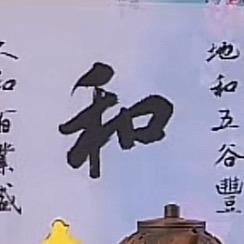 地和五谷豐
和
人和百業盛